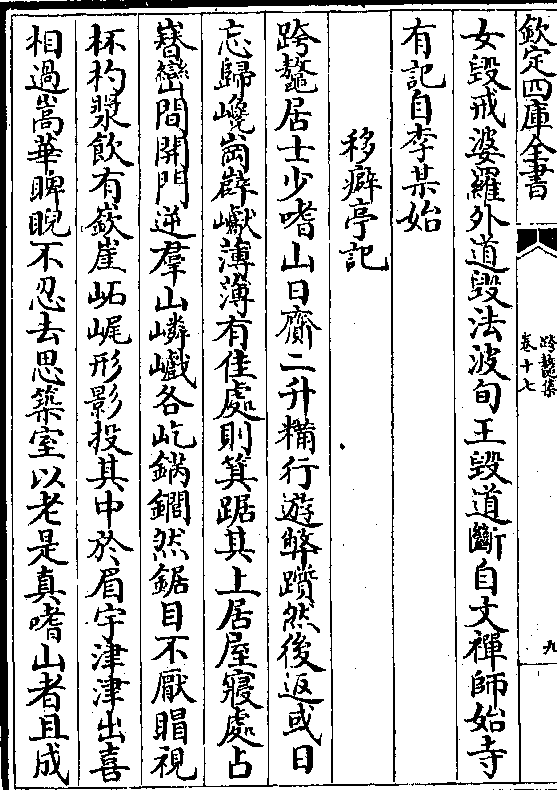 欽定四庫全書
跨鼇集
卷十七
九
女毀戒婆羅外道毀法波旬王毀道斷自文禪師始寺
有記自李某始
移癖亭記
跨鼇居士少嗜山日齎二升糒行遊嶭躋然後返或日
忘歸巉崗辟巘薄薄有佳處則箕踞其上居屋寢處占
巒間開門逆羣山嶙巇各屹鍋鐧然鋸目不厭睊視
杯杓漿飲有嶔崖岮崐形影投其中於眉宇津津出喜
相過嵩華睥睨不忍去思築室以老是真嗜山者且成